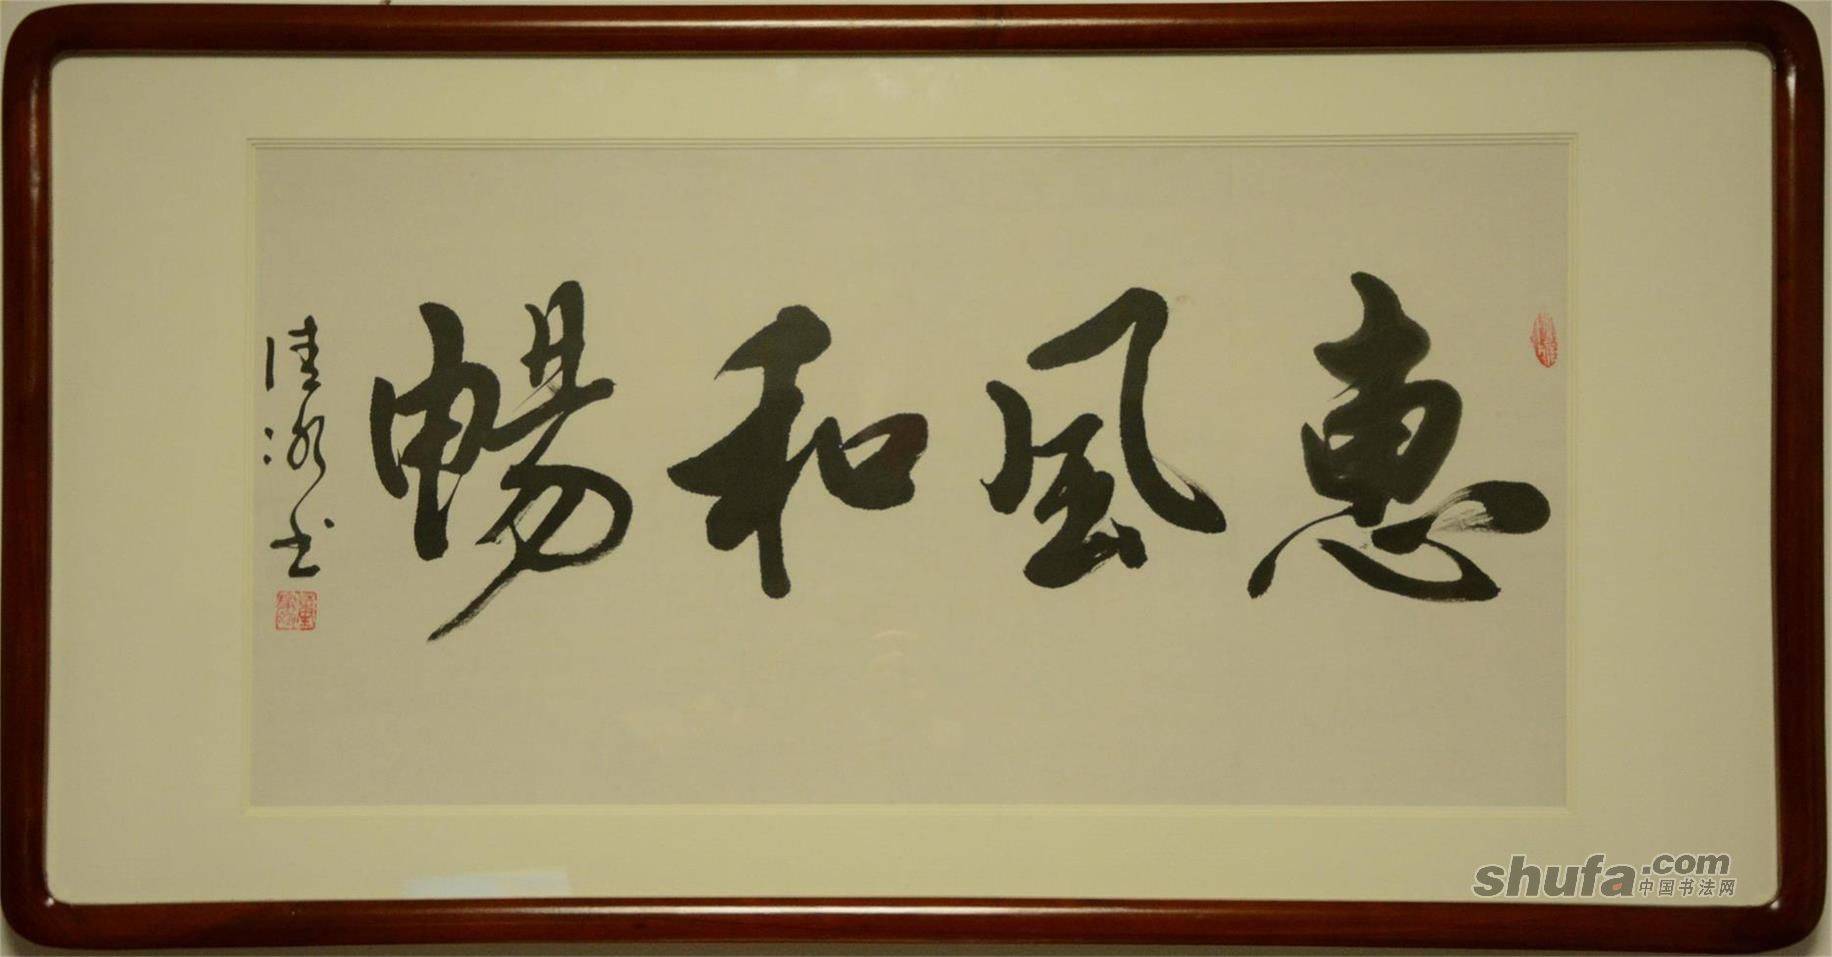 惠風和暢
佳冰书
shufa.com
中国书法网